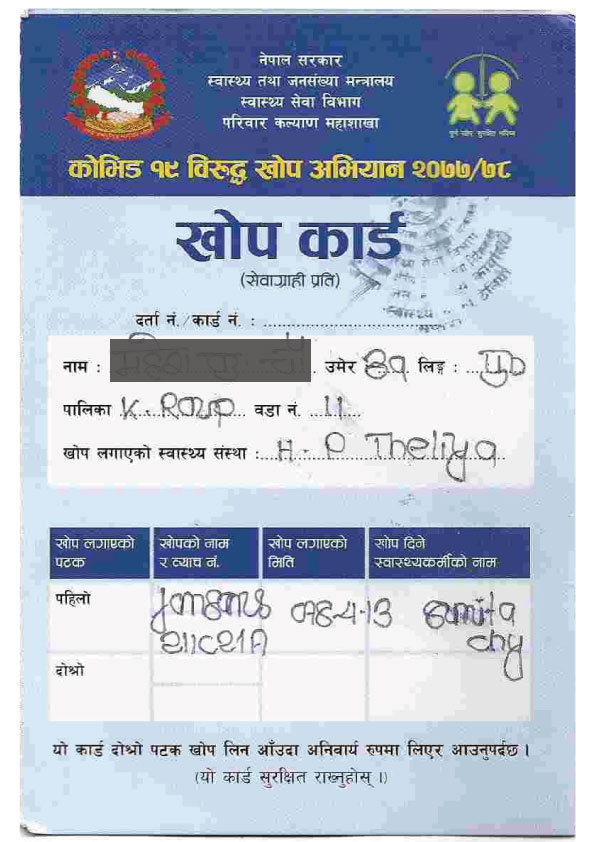 नेपाल सरकार
स्वास्थ्य तथा जनसंख्या मन्त्रालय
स्वास्थ्य सेवा विभाग
परिवार कल्याण महाशाखा
कोभिड १९ विरुद्ध खोप अभियान २०७७/७८
खोप कार्ड
(सेवाग्राही प्रति)
दर्ता नं./कार्ड नं. :
नाम : उमेर लिङ्ग :
पालिका वडा नं. 11
खोप लगाएको स्वास्थ्य संस्था : H - P Theliya
खोप लगाएको पटक खोपको नाम र व्याच नं. खोप लगाएको मिति खोप दिने स्वास्थ्यकर्मीको नाम
पहिलो 078-4-13
दोश्रो
यो कार्ड दोश्रो पटक खोप लिन आँउदा अनिवार्य रुपमा लिएर आउनुपर्दछ ।
(यो कार्ड सुरक्षित राख्नुहोस् ।)